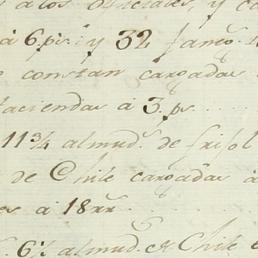 a los oficiales, y c
à 6. ps. y 32 faneg.
e constan cargadas
Haciendas à 3. ps
11 3/4 almud.s de frisol
de Chile cargadas à
es a 18 rr.
6 1/2 almud.s de Chile